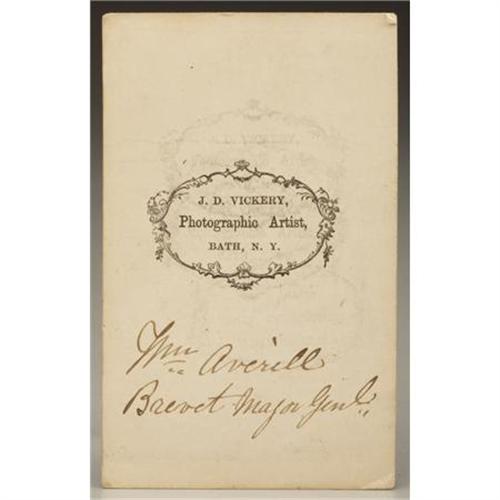 J. D. VICKERY,
Photographic Artist,
BATH, N. Y.
Wm Averill
Brevet Major Genl.